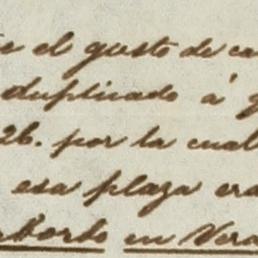 el gusto de ca
duplicado á g
26. por la cual
esa plaza era
en Vera